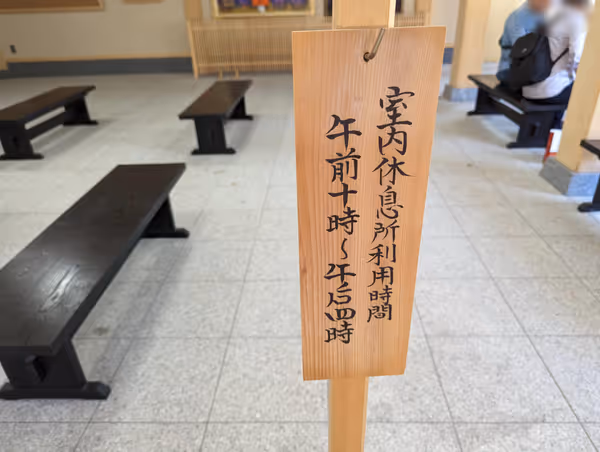 室内休息所利用時間
午前十時～午后四時